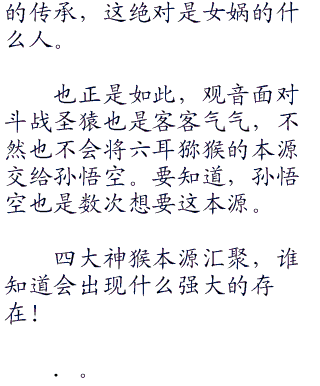 的传承，这绝对是女娲的什
么人。
也正是如此，观音面对
斗战圣猿也是客客气气，不
然也不会将六耳猕猴的本源
交给孙悟空。要知道，孙悟
空也是数次想要这本源。
四大神猴本源汇聚，谁
知道会出现什么强大的存
在！
．。